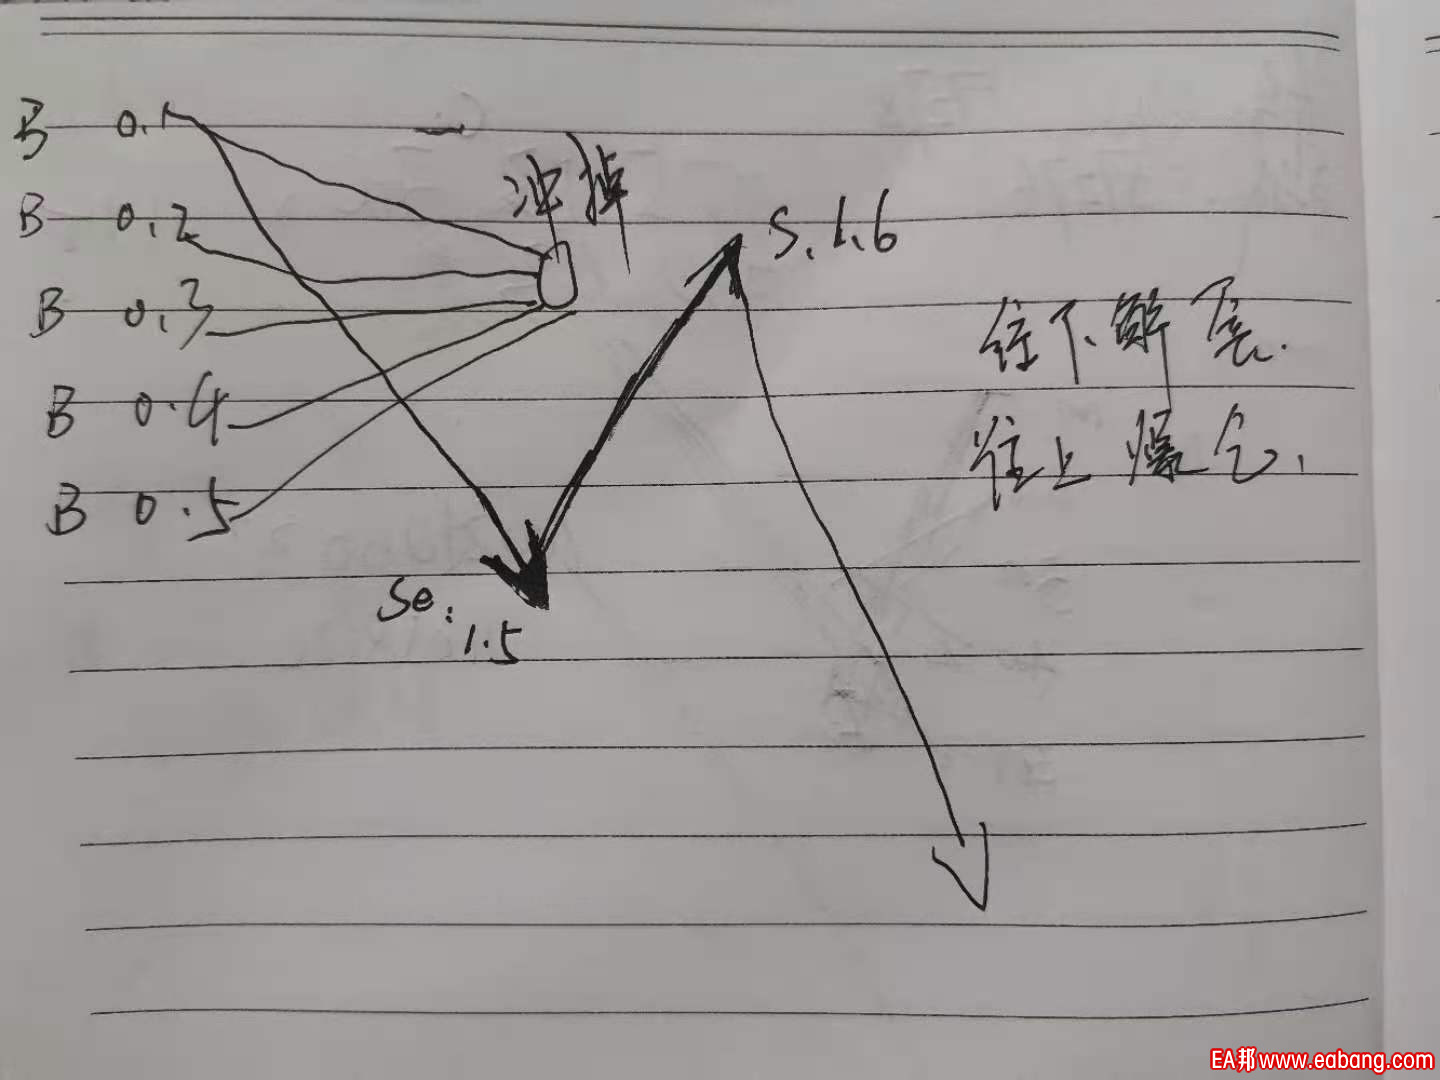 B 0.1
B 0.2
B 0.3
B 0.4
B 0.5
冲掉
S. 1.6
Se: 1.5
往下解套.
往上爆仓.
EA邦www.eabang.com